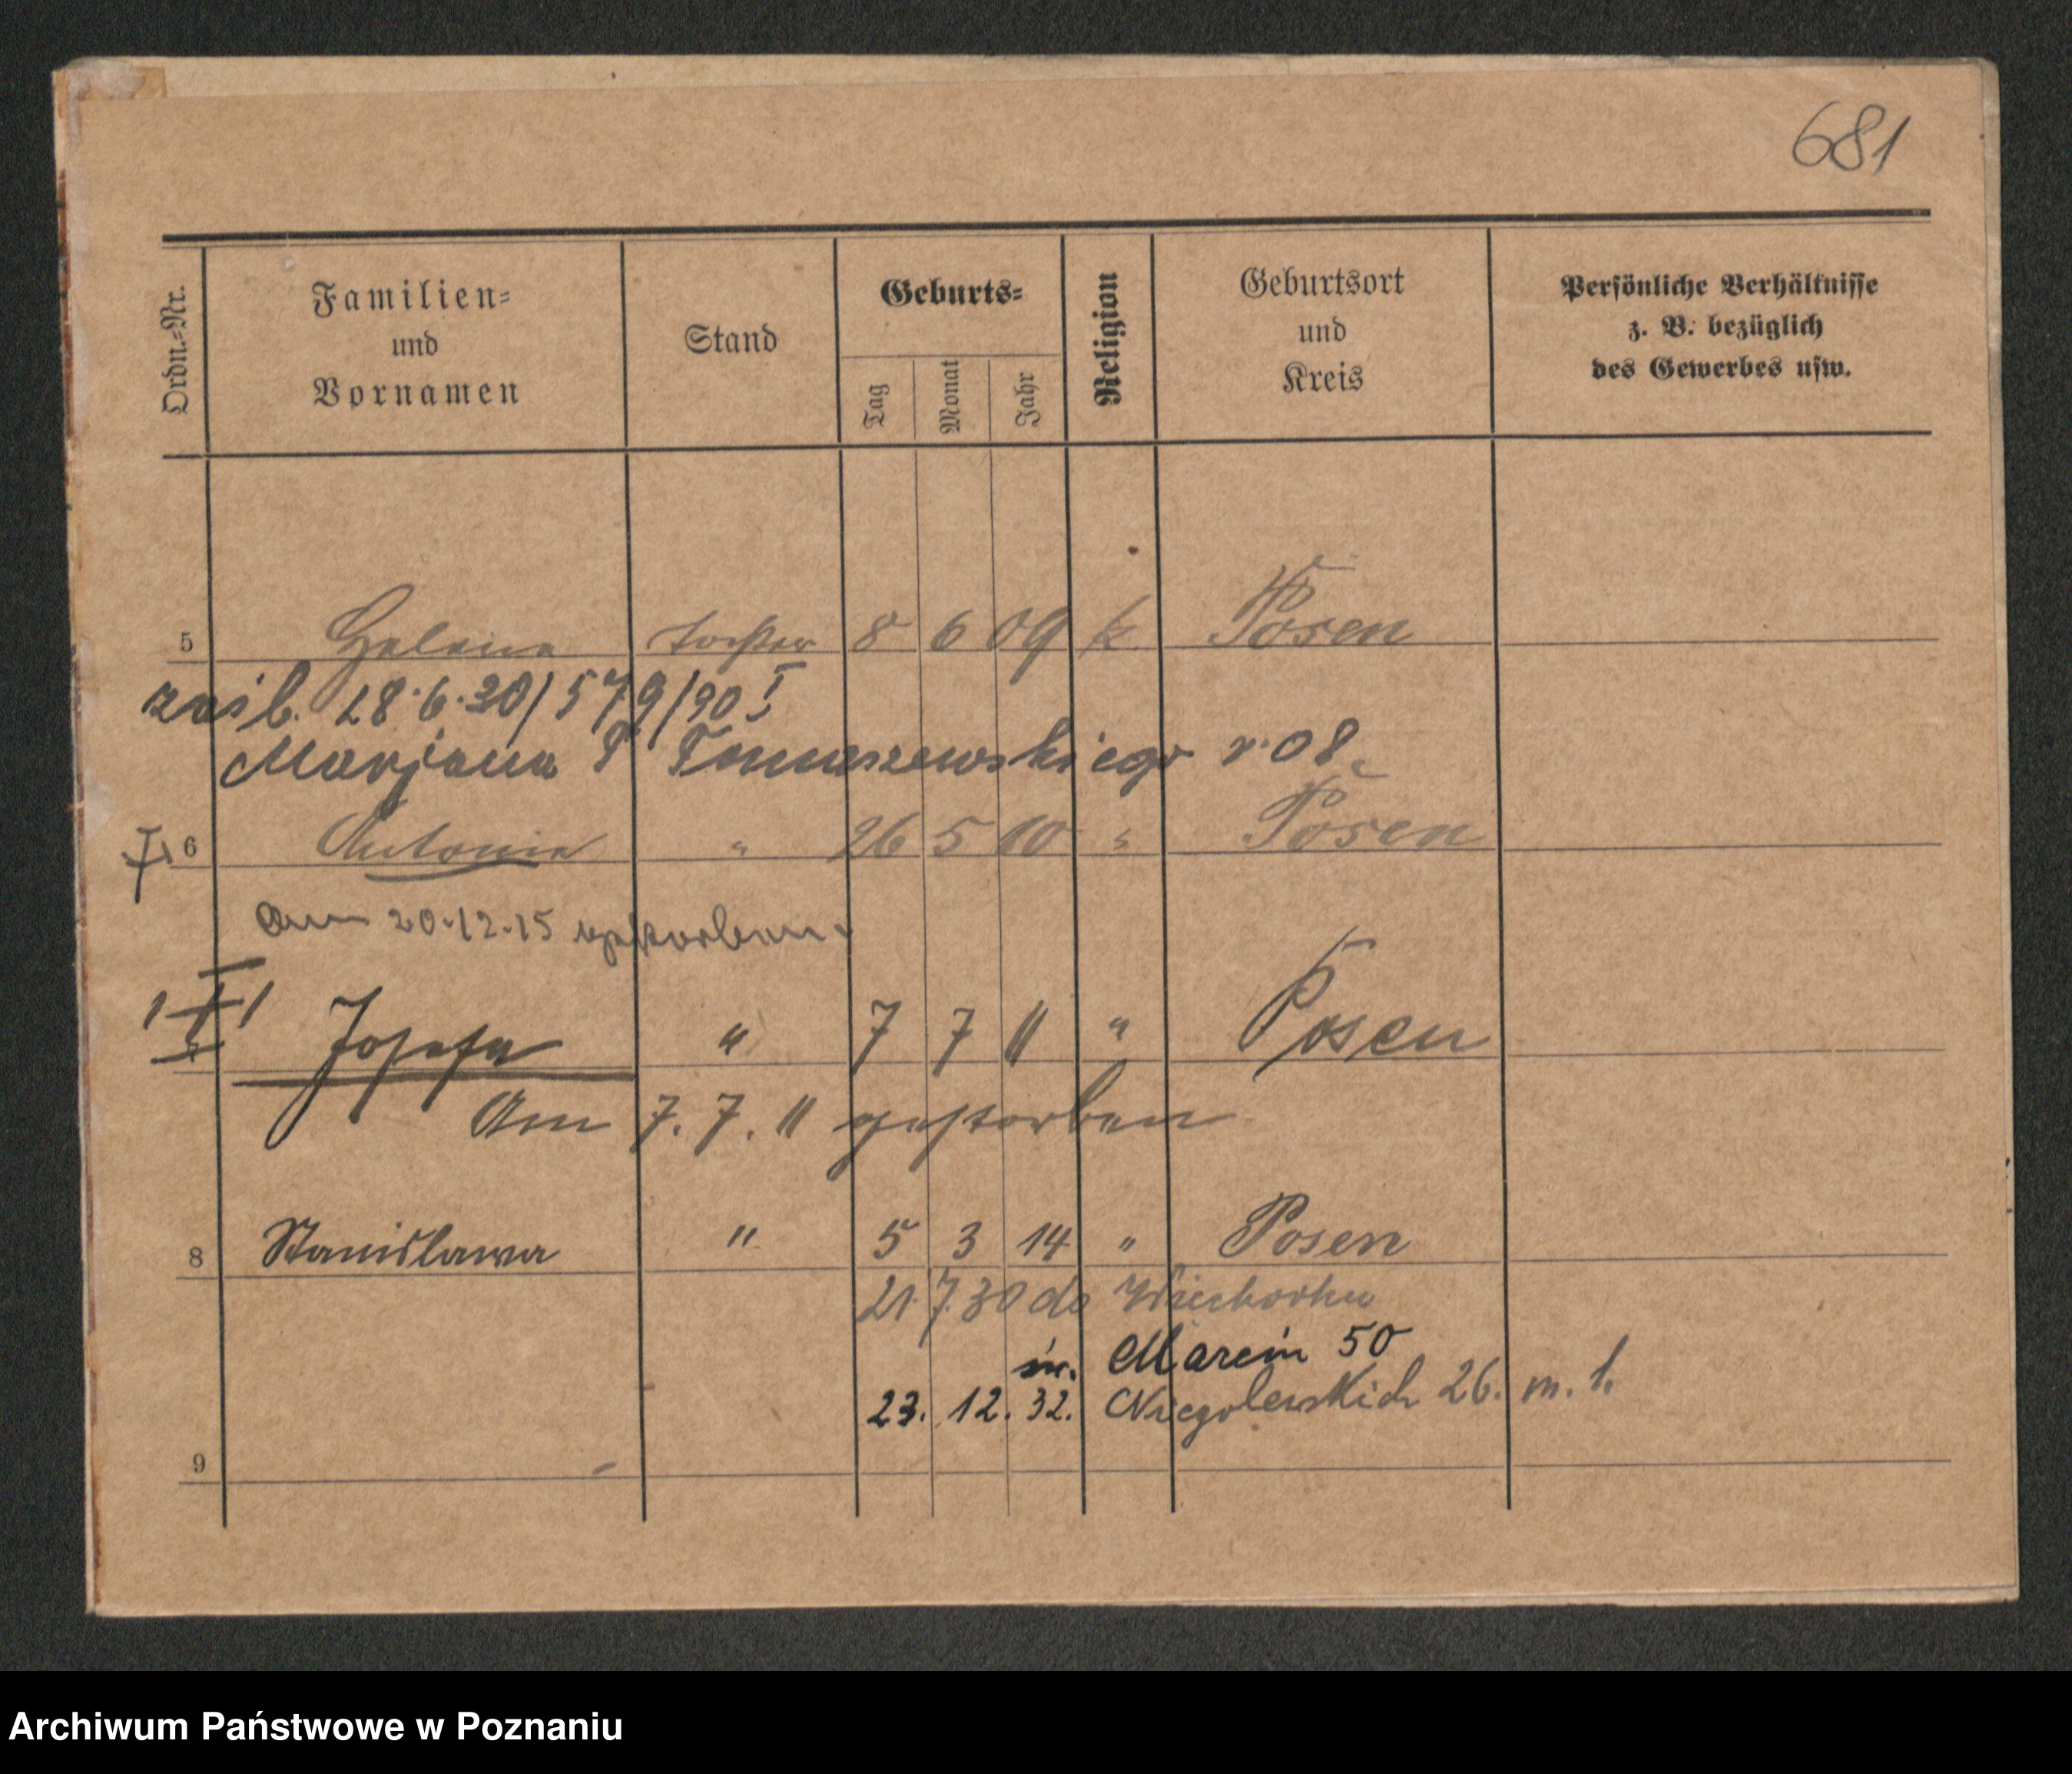 681
Ordn.-Nr.
Familien-
und
Vornamen
Stand
Geburts-
Tag
Monat
Jahr
Religion
Geburtsort
und
Kreis
Persönliche Verhältnisse
z. B. bezüglich
des Gewerbes usw.
5 Helena Tochter 8 6 09 k. Posen
28.6.30/579/30 I
Marjana T Tomaszewskiego r. 08.
6 Antonie " 26 5 10 " Posen
am 20.12.15 gestorben.
Josefa " 7 7 11 " Posen
Am 7.7.11 gestorben
8 Stanislawa " 5 3 14 " Posen
21.7.30 do Wiechorku
św. Marcin 50
23. 12. 32. Niegolewskich 26. m. 1.
9
Archiwum Państwowe w Poznaniu